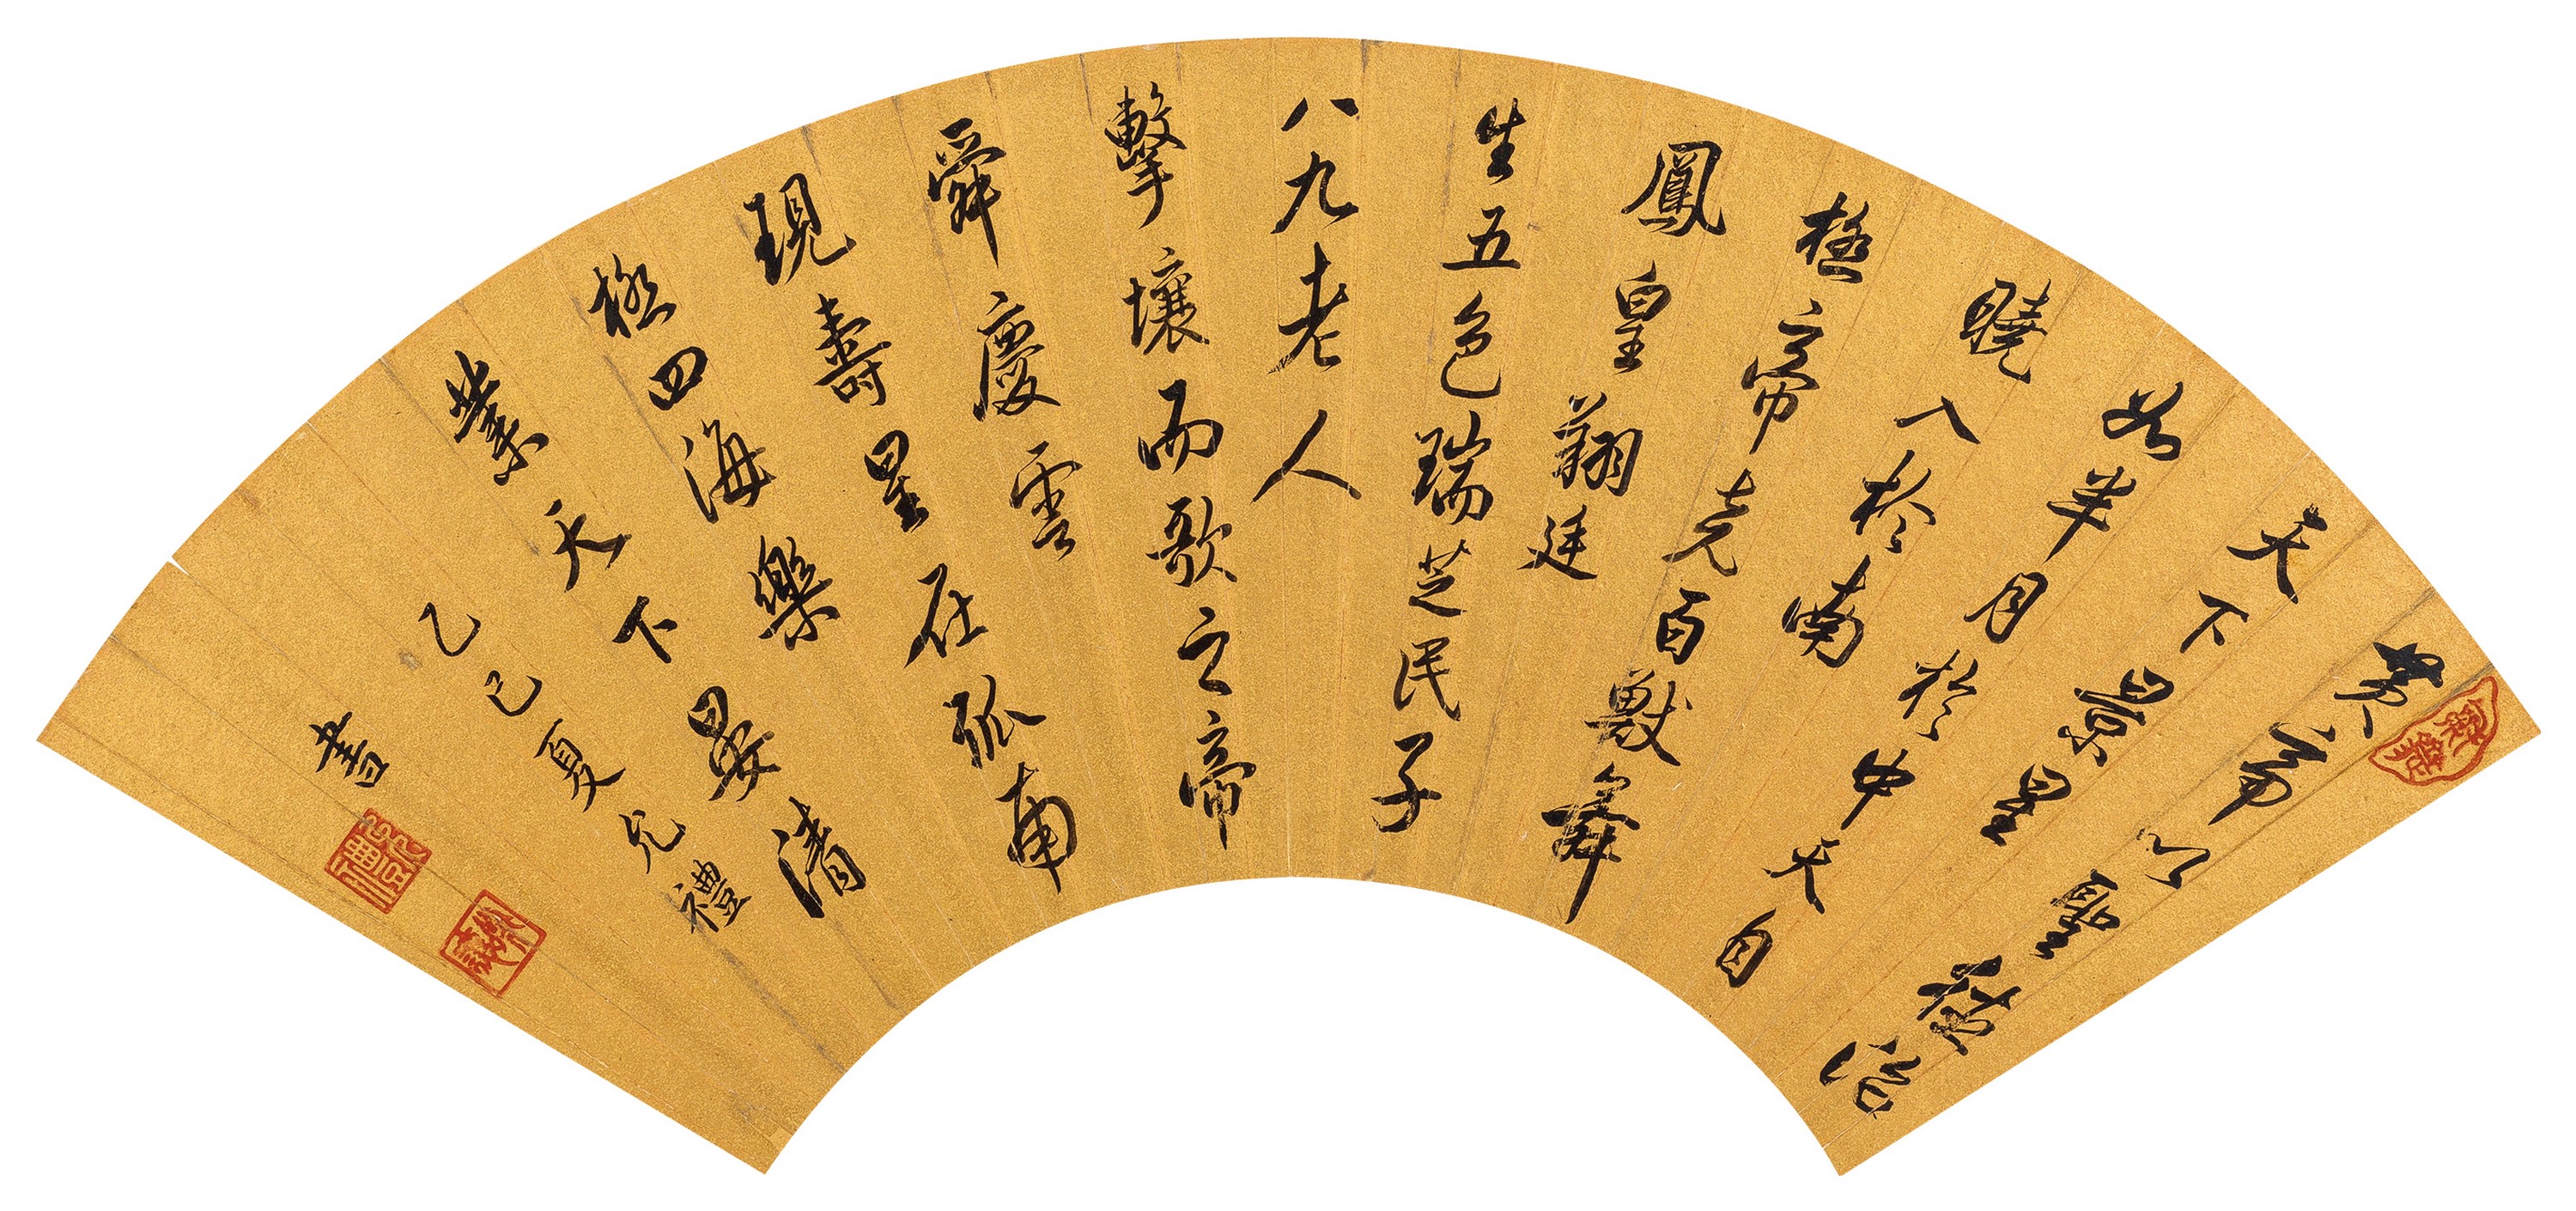 黄帝以聖德治
天下景星
如半月於中天自
曉入於南
極帝堯百獸舞
鳳皇翔廷
生五色瑞芝民子
八九老人
擊壤而歌之帝
舜慶雲
現壽星在孤南
極四海樂
業天下晏清
乙巳夏允禮
書